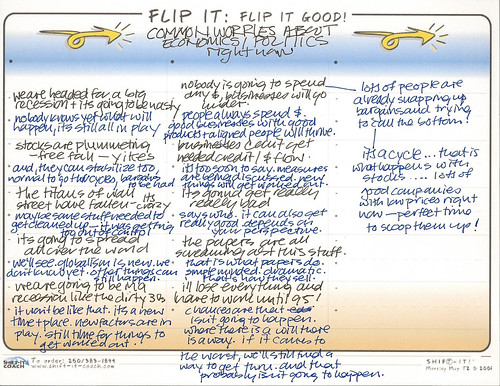 FLIP IT: FLIP IT GOOD!
COMMON WORRIES ABOUT
ECONOMICS/POLITICS
right now
we are headed for a big
recession + its going to be nasty
nobody knows yet what will
happen, its still all in play
stocks are plummeting
- free fall - yikes
and, they can stabilize too,
normal to go thru cycles, bargains
to be had
the titans of wall
street have fallen - its crazy
maybe some stuff needed to
get cleaned up - it was getting
too out of control
its going to spread
all over the world
we'll see. globalism is new. we
dont know yet. other things can
still happen.
we are going to be in a
recession like the dirty 30s
it wont be like that. its a new
time + place. new factors are in
play. still time for things to
get worked out!
nobody is going to spend
any $, businesses will go
under.
people always spend $.
good businesses with good
products + aligned people will thrive.
businesses can't get
needed credit / $ flow
it's too soon to say. measures
are being discussed. new
things will get worked out.
its gonna get really
really bad
says who. it can also get
really good depends on
your perspective.
the papers are all
screaming about this stuff.
that is what papers do.
simple minded. dramatic.
thats how they sell.
ill lose everything and
have to work until 95!
chances are that
isn't going to happen.
where there is a will there
is a way. if it comes to
the worst, we'll still find a
way to get thru. and that
probably isn't going to happen.
lots of people are
already snapping up
bargains and trying
to call the bottom!
its a cycle... that is
what happens with
stocks... lots of
good companies
with low prices right
now - perfect time
to scoop them up!
SHIFT-IT
COACH
To order: 250/383-1844
www.shift-it-coach.com
SHIFT-IT!